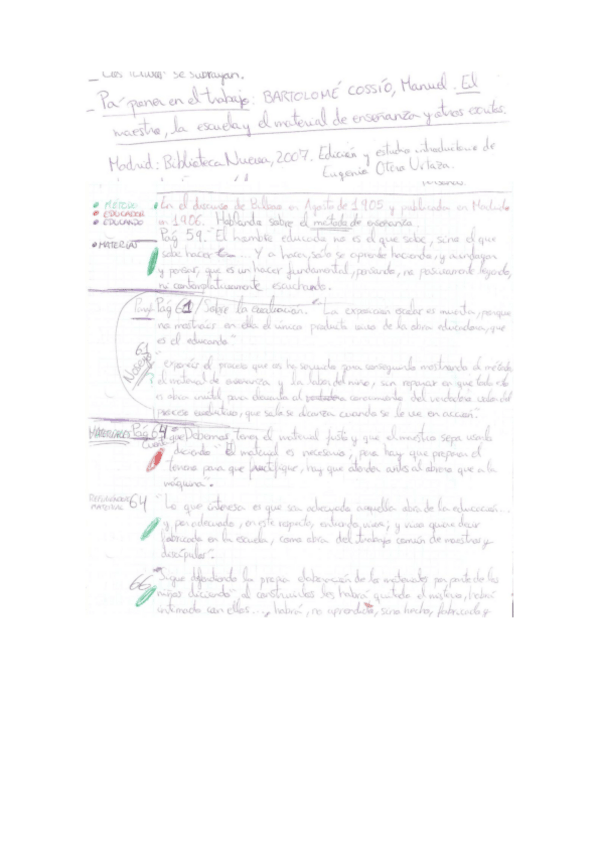 se subrayan.
_ Pa' poner en el trabajo: BARTOLOMÉ COSSÍO, Manuel. El
maestro, la escuela y el material de enseñanza y otros escritos.
Madrid: Biblioteca Nueva, 2007. Edición y estudio introductorio de
Eugenio Otero Urtaza.
• MÉTODO
• EDUCADOR
• EDUCANDO
• MATERIAL
• En el discurso de Bilbao en Agosto de 1905 y publicado en Madrid
en 1906. Hablando sobre el método de enseñanza.
Pág 59. "El hombre educado no es el que sabe, sino el que
sabe hacer ... Y a hacer, solo se aprende haciendo, y
y pensar, que es un hacer fundamental, pensando, no pasivamente leyendo,
ni contemplativamente escuchando.
Pág 61 / Sobre la evaluación. "La exposición escolar es muerta, porque
no mostráis en ella el único producto vivo de la obra educadora, que
es el educando"
61
"exponéis el proceso que os ha servido para conseguirlo mostrando el método,
el material de enseñanza y la labor del niño, sin reparar en que todo ello
es obra inútil para el conocimiento del verdadero valor del
proceso educativo, que solo se alcanza cuando se le ve en acción."
MATERIALES Pág 64
"que Debamos tener el material justo y que el maestro sepa usarlo
diciendo "El material es necesario; pero hay que preparar el
terreno para que fructifique, hay que atender antes al obrero que a la
máquina".
MATERIAL 64
"Lo que interesa es que sea adecuado aquella obra de la educación...
y por adecuado, en este respecto, entiendo, viva; y viva quiere decir
fabricada en la escuela, como obra del trabajo común de maestros y
discípulos".
66
"Sigue defendiendo la propia elaboración de los materiales por parte de los
niños diciendo "al construirlos les habrá quitado el misterio, habrá
intimado con ellos..., habrá, no aprendido, sino hecho, fabricado y